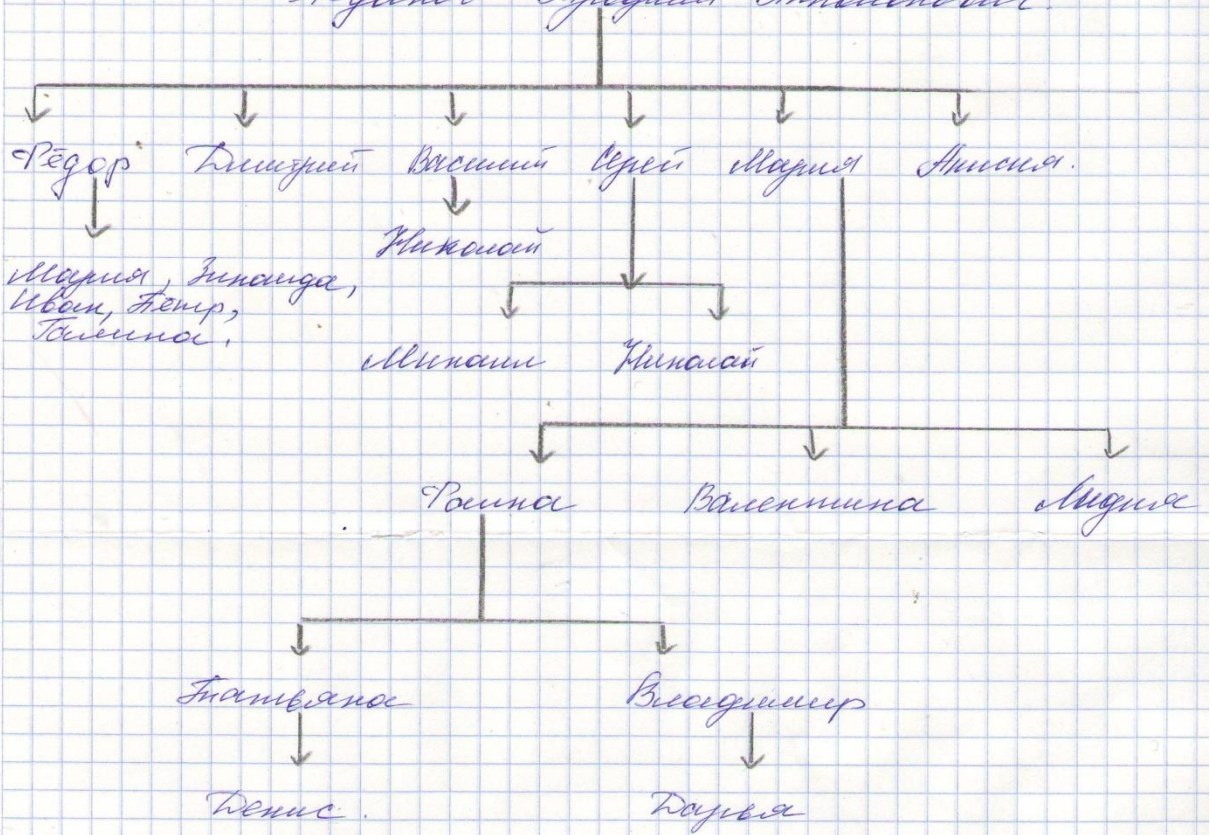 Фёдор Дмитрий Василий Сергей Мария Анисия.
Николай
Мария, Зинаида,
Иван, Пётр,
Галина.
Михаил Николай
Фаина Валентина Лидия
Татьяна Владимир
Денис. Дарья